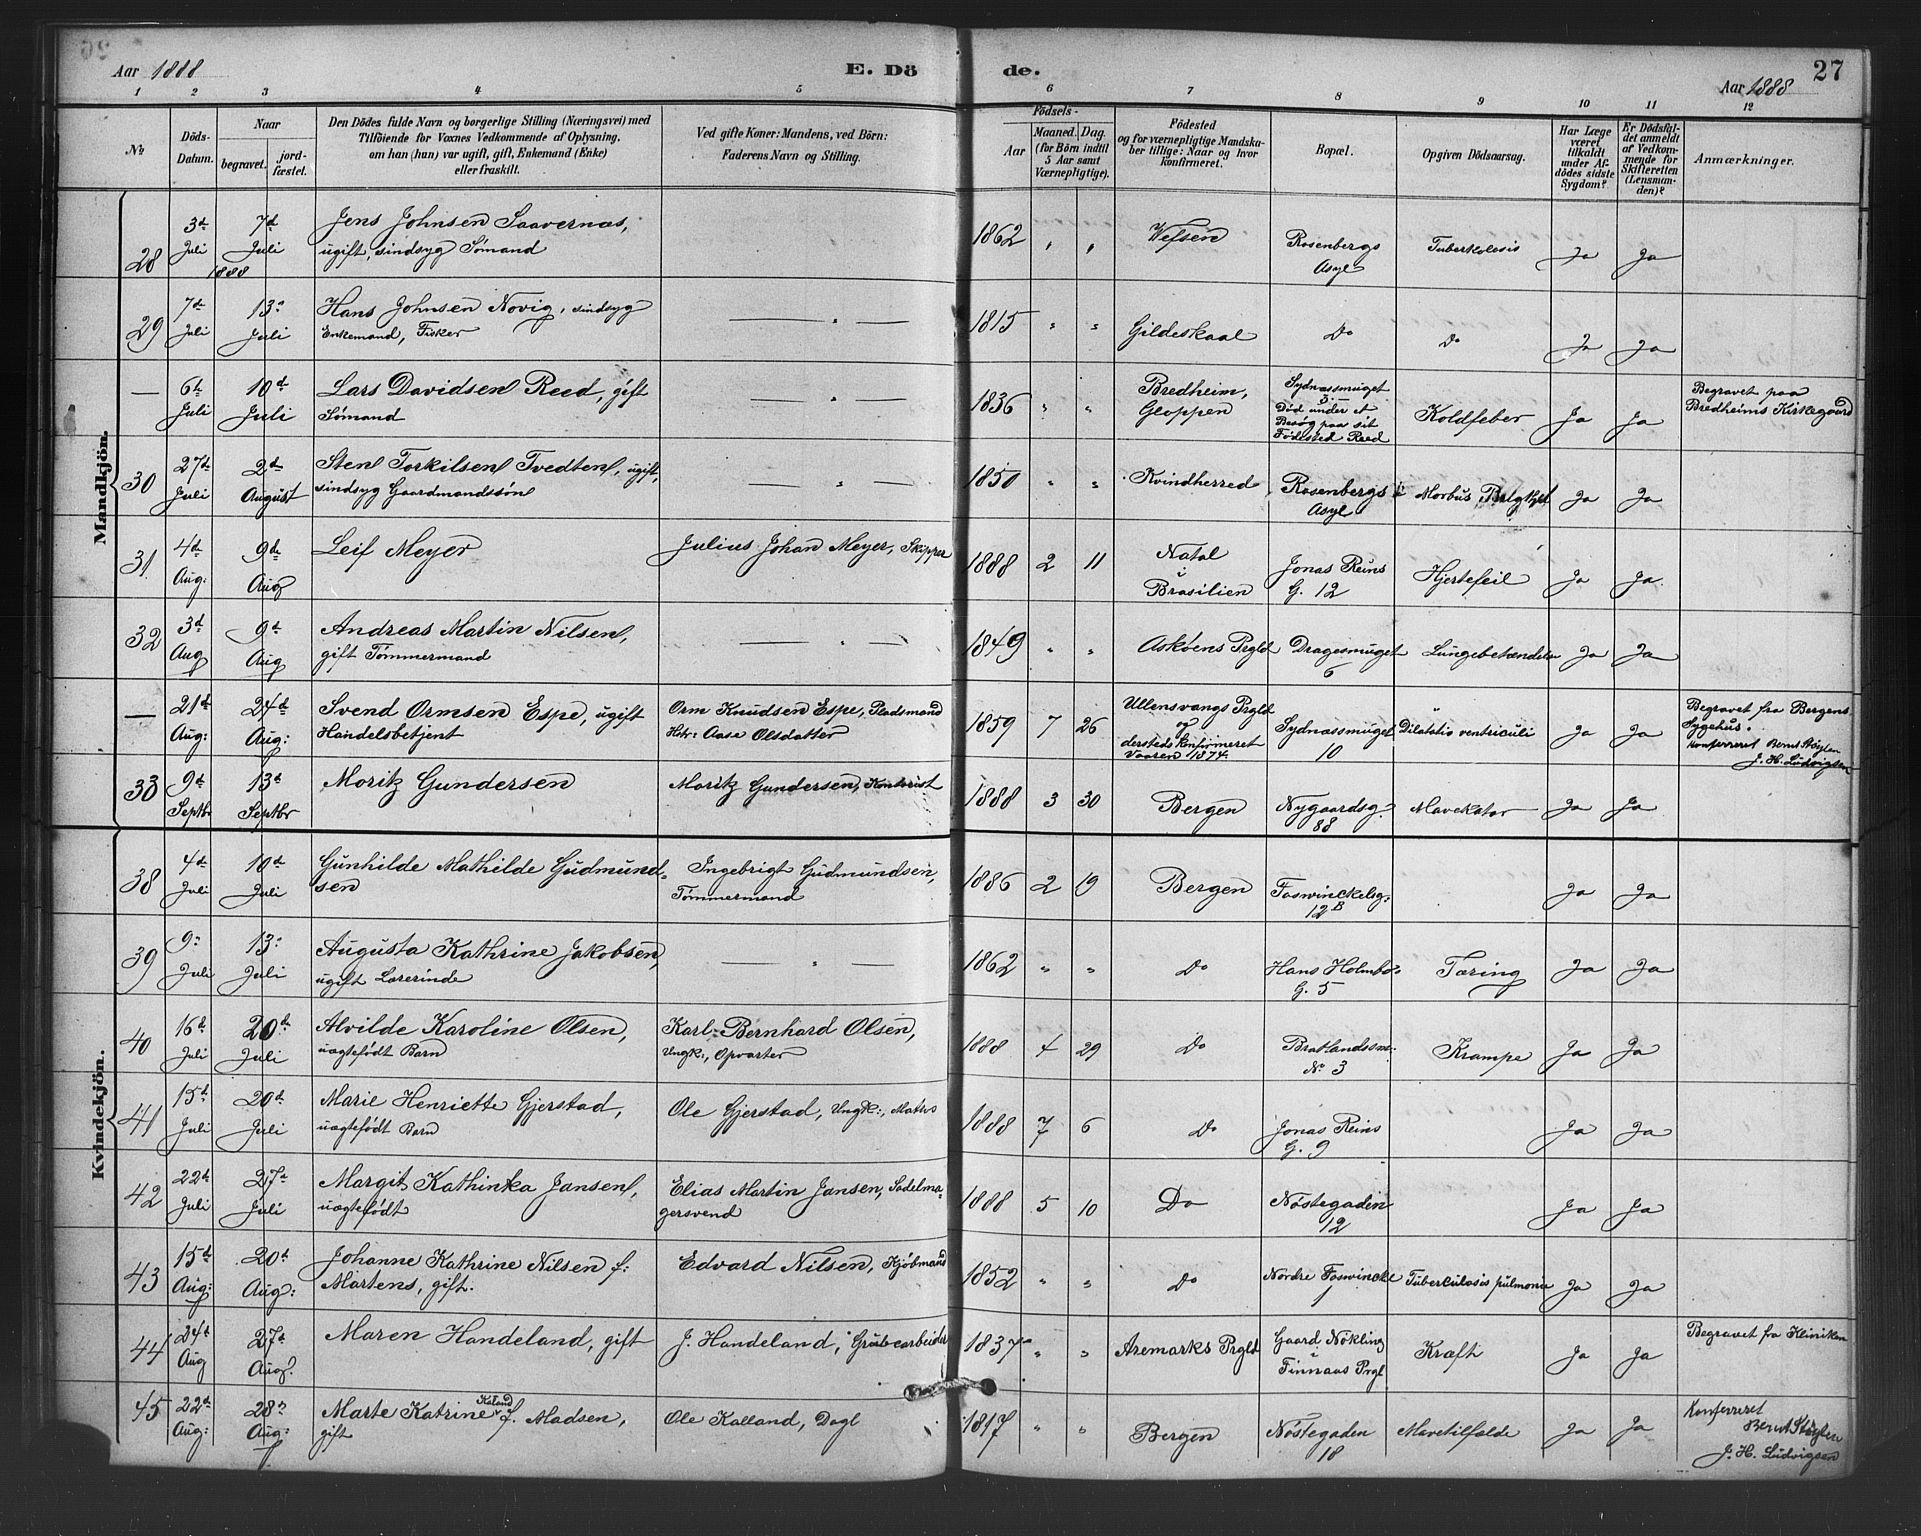 Aar 1888
E. Dö
de.
Aar 1888
27
1 2 3 4 5 6 7 8 9 10 11 12
No
Döds-Datum.
Naar
begravet.
jord-fæstet.
Den Dödes fulde Navn og borgerlige Stilling (Næringsvei) med
Tilföiende for Voxnes Vedkommende af Oplysning,
om han (hun) var ugift, gift, Enkemand (Enke)
eller fraskilt.
Ved gifte Koner: Mandens, ved Börn:
Faderens Navn og Stilling.
Födsels-
Aar
Maaned. Dag.
(for Börn indtil
5 Aar samt
Værnepligtige).
Födested
og for værnepligtige Mandska-
ber tillige: Naar og hvor
konfirmeret.
Bopæl.
Opgiven Dödsaarsag.
Har Læge
været
tilkaldt
under Af-
dödes sidste
Sygdom?
Er Dödsfal-
det anmeldt
af Vedkom-
mende for
Skifteretten
(Lensman-
den)?
Anmærkninger.
Mandkjön.
28 3d Juli 1888 7d Juli Jens Johnsen Saavernas, 1862 " " Vefsen Rosenbergs Tuberkolosis Ja Ja
ugift, sindsyg Sømand Asyl
29 7d Juli 13d Juli Hans Johnsen Novig, sindsyg — " — 1815 " " Gildeskaal Do Do Ja Ja
Enkemand, Fisker
— 6te Juli 10d Juli Lars Davidsen Reed, gift — " — 1836 " " Bredheim, Sydnæssmuget Koldfeber Ja Ja Begravet paa
Sømand Gloppen 3. Død under et Bredheims Kirkegaard
Besøg paa sit
Fødested Reed
30 27d Juli 2d August Sten Torkilsen Tvedten, ugift, — " — 1850 " " Kvindherred Rosenbergs Morbus Brigthii Ja Ja
sindsyg Gaardmandssøn Asyl
31 4d Aug: 9de Aug Leif Meyer Julius Johan Meyer, Skipper 1888 2 11 Natal Jonas Reins Hjertefeil Ja Ja
i Brasilien G. 12
32 3d Aug 9d Aug Andreas Martin Nilsen, — " — 1849 " " Askøens Prgld Dragesmuget Lungebetændelse Ja Ja
gift Tømmermand 6
— 21d Aug: 24de Aug: Svend Ormsen Espe, ugift Orm Knudsen Espe, Pladsmand 1859 7 26 Ullensvangs Prgld Sydnæssmuget Dilatatio ventriculi Ja Ja Begravet fra Bergens
Handelsbetjent Hstr: Aase Olsdatter og 10 Sygehus.
dersteds konfirmeret Konferreret Bernt Støylen
Vaaren 1874. J. H. Ludvigsen
33 9d Septbr 13d Septbr Moritz Gundersen Moritz Gundersen, Kontorist 1888 3 30 Bergen Nygaardsg. Mavekatar Ja Ja
88
Kvindekjön.
38 4d Juli 10d Juli Gunhilde Mathilde Gudmund- Ingebrigt Gudmundsen, 1886 2 19 Bergen Foswinckelsg. Ja Ja
sen Tømmermand 12B
39 9d Juli 13d Juli Augusta Kathrine Jakobsen, — " — 1862 " " Do Hans Holmbo's Tæring Ja Ja
ugift Lærerinde G. 5
40 16d Juli 20de Juli Alvilde Karoline Olsen, Karl Bernhard Olsen, 1888 4 29 Do Bratlandssm. Krampe Ja Ja
uægtefødt Barn Ungk:, Opvarter No 3
41 15d Juli 20d Juli Marie Henriette Gjerstad, Ole Gjerstad, Ungk:, Matros 1888 7 6 Do Jonas Reins Ja Ja
uægtefødt Barn G. 9
42 22d Juli 27de Juli Margit Kathinka Jansen, Elias Martin Jansen, Sadelma- 1888 5 10 Do Nøstegaden Ja Ja
uægtefødt gersvend 12
43 15d Aug: 20d Aug: Johanne Kathrine Nilsen f: Edvard Nilsen, Kjøbmand 1852 " " Do Nordre Foswinckl Tuberculosis pulmonum Ja Ja
Martens, gift. 1
44 24d Aug 27d Aug. Maren Handeland, gift J. Handeland, Grubearbeider 1837 " " Aremarks Prgld Gaard Nøkling Kræft Ja Ja Begravet fra Kliniken
i Finnaas Prgl
45 22de Aug: 28de Aug: Marte Katrine Kaland f. Madsen, Ole Kalland, Dagl 1817 " " Bergen Nøstegaden Mavetilfælde Ja Ja Konferreret
gift 18 Bernt Støylen
J. H. Ludvigsen